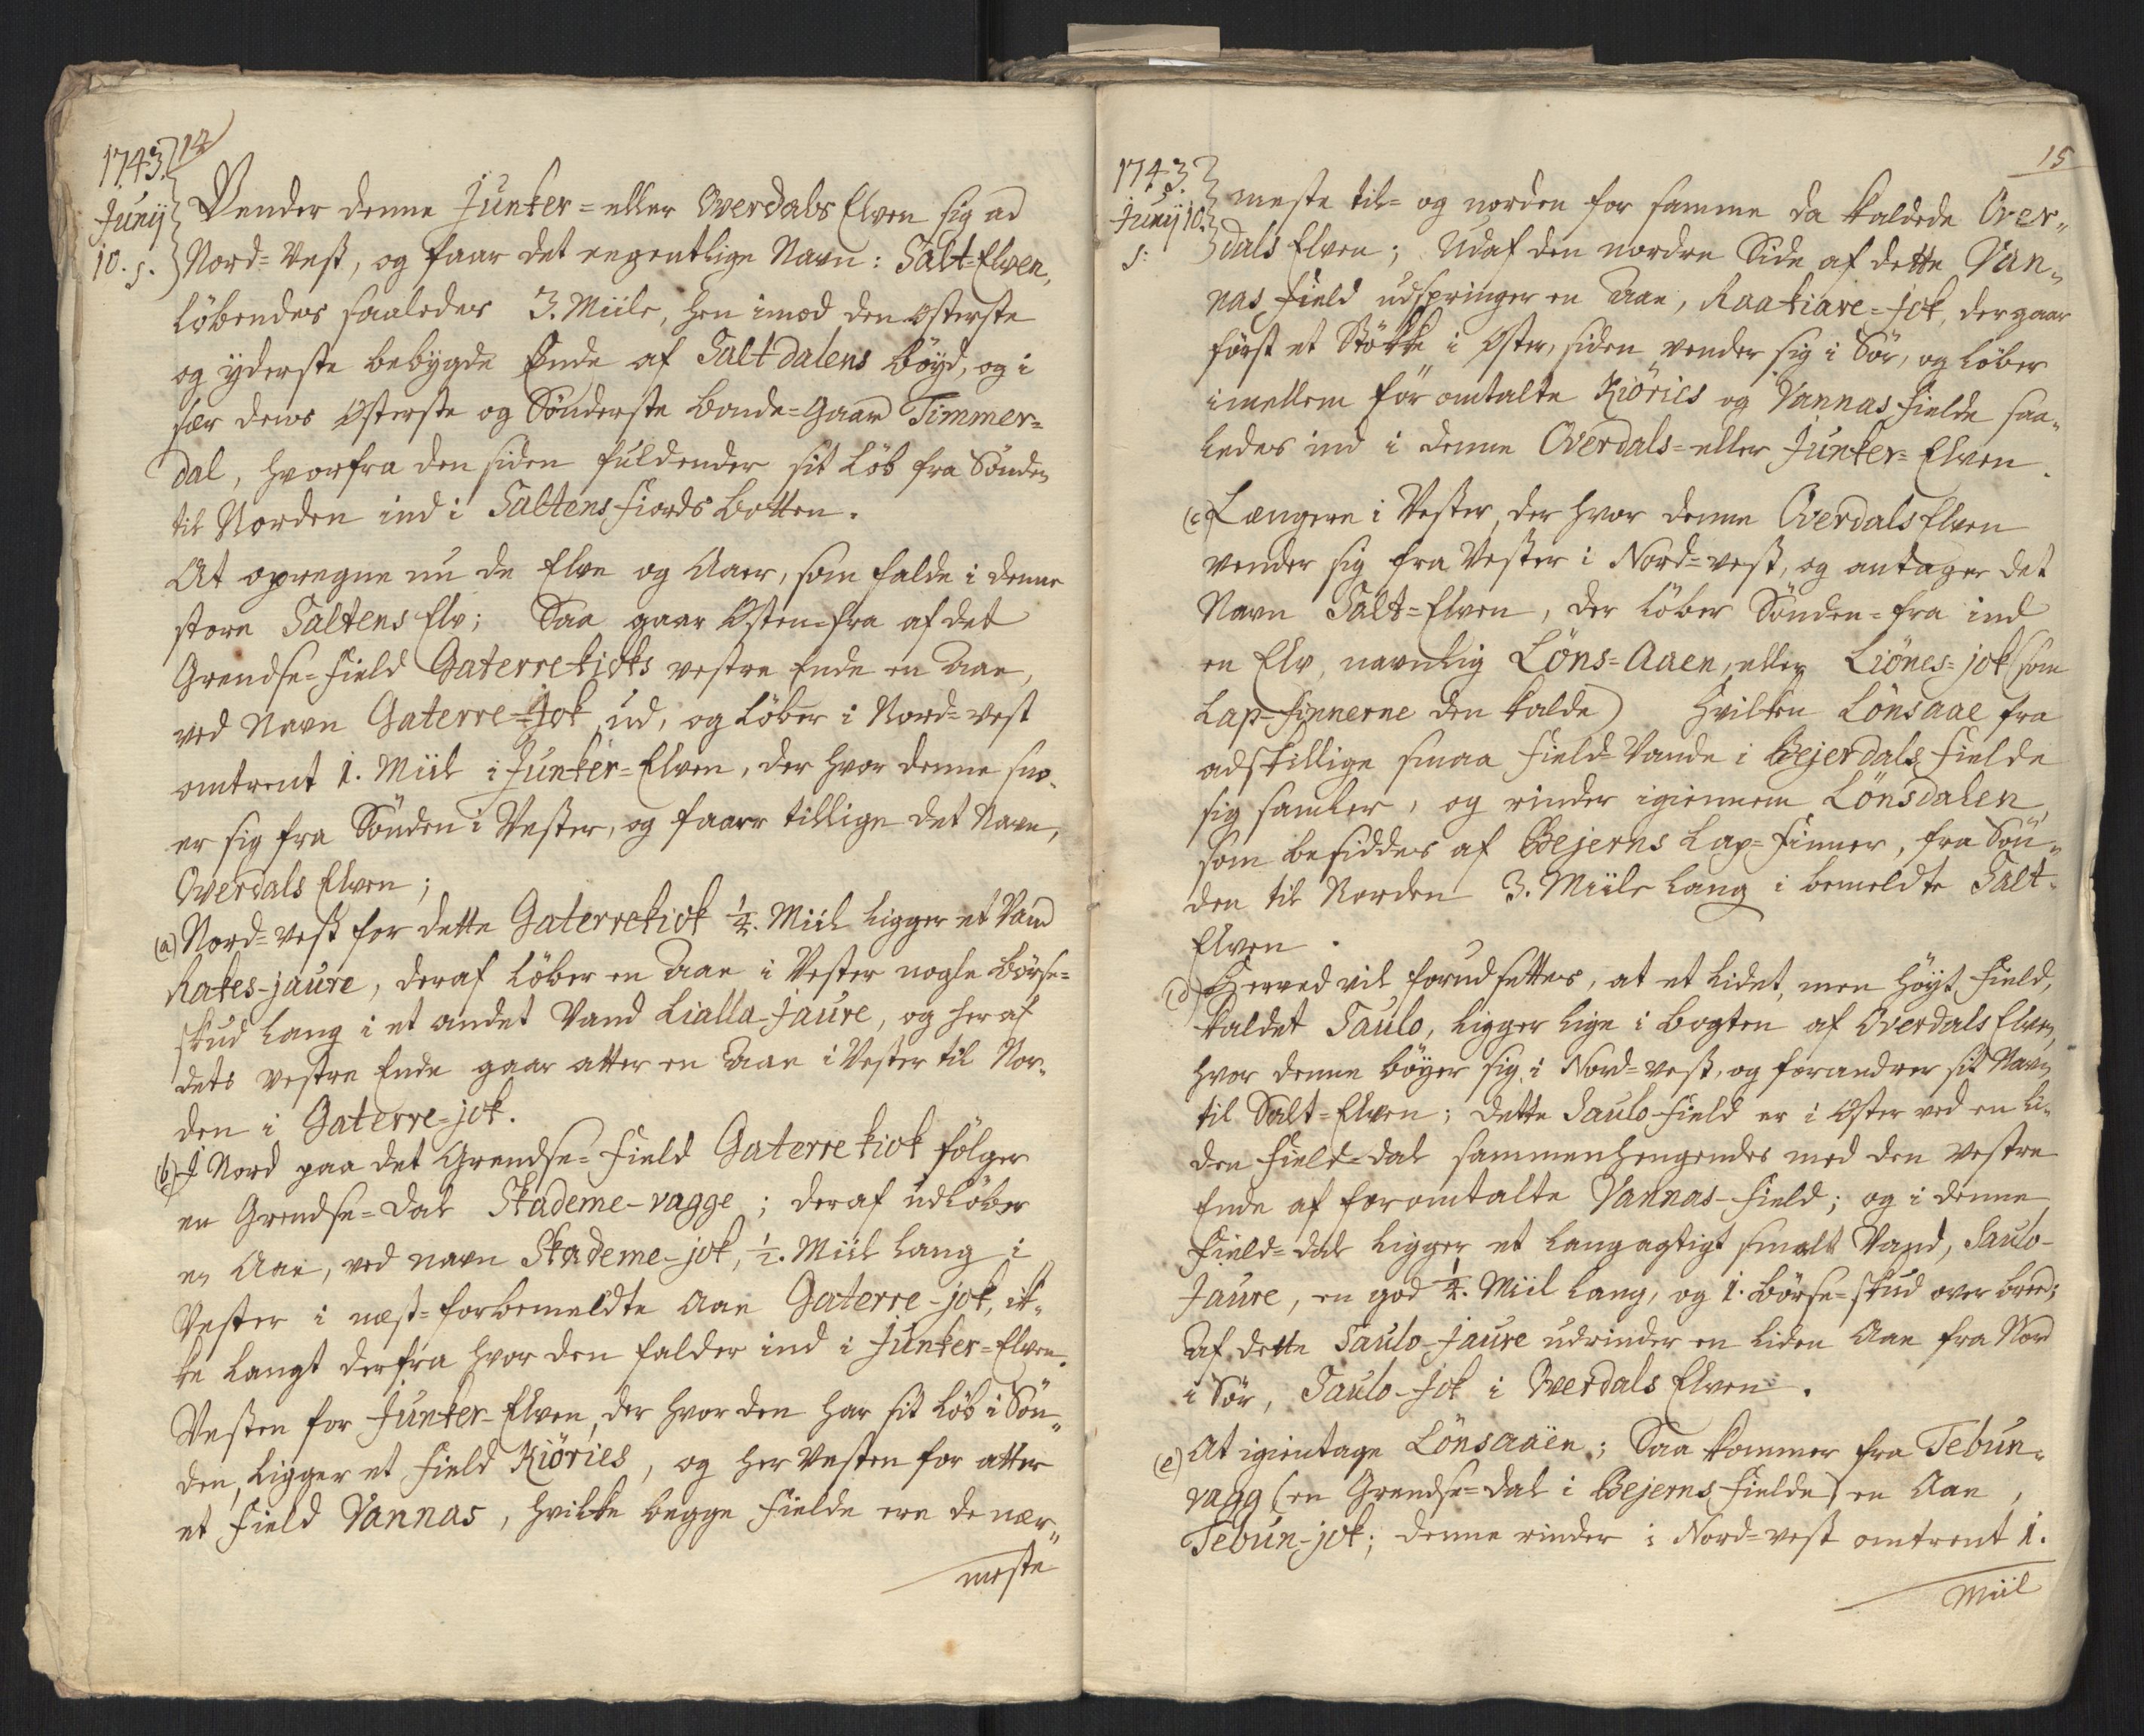 1743.
14
Junij
10. s.
Vender denne Junker=eller Overdals Elven sig ad
Nord=Vest, og faar det eegentlige Navn: Salt=Elven,
löbendes saaledes 3. Miile, hen imod den osterste
og yderste bebygde Ende af Saltdalens bögd, og i
sær dens osterste og Sönderste bonde=gaard Timmer=
dal, hvorfra den siden fuldender sit Löb fra Sönden
til Norden ind i Saltens fiords botten.
At opregne nu de Elve og Aaer, som falde i denne
store Saltens Elv; Saa gaar Osten=fra af det
Grendse=field Gaterrekioks vestre Ende en Aae,
ved Navn Gaterre=jok ud, og löber i Nord=vest
omtrent 1. Miil i Junker=Elven, der hvor denne sno-
er sig fra Sönden i Vester, og faaer tillige det Navn,
Overdals Elven;
(a) Nord=vest for dette Gaterrekiok 1/4. Miil ligger et Vand
Rakes-jaure, deraf löber en Aae i Vester nogle börse=
skud lang i et andet Vand Lialla-Jaure, og her af
dets vestre Ende gaar atter en Aae i Vester til Nor-
den i Gaterre=jok.
(b) I Nord paa det Grendse=field Gaterrekiok fölger
en Grendse=dal Skademe-vagge; deraf udlöber
en Aae, ved navn Skademe-jok, 1/2. Miil lang i
Vester i næst=forbemeldte Aae Gaterre-jok, ik-
ke langt derfra hvor den falder ind i Junker=Elven.
Vesten for Junker-Elven, der hvor den har sit löb i Sön-
den, ligger et field Kiöries, og her Vesten for atter
et field Vannas, hvilke begge fielde ere de nær-
meste
15
1743.
Junij 10.
s:
meste til= og norden for samme da kaldede Over-
dals Elven; Udaf den nordre Side af dette Van-
nas field udspringer en Aae, Raakiare=jok, der gaar
först et Stökke i Oster, siden vender sig i Sör, og löber
imellem för omtalte Kiöries og Vannas fielde saa-
ledes ind i denne Overdals=eller Junker=Elven.
(c) Længere i Vester, der hvor denne Overdals Elven
vender sig fra Vester i Nord=vest, og antager det
Navn Salt=Elven, der löber Sönden=fra ind
en Elv, navnlig Löns=Aaen, eller Liönes=jok (som
Lap=finnerne den kalde) hvilken Lönsaae fra
adskillige smaa field=Vande i Bejerdals fielde
sig samler, og rinder igiennem Lönsdalen,
som besiddes af Bejerns Lap=finner, fra Sön-
den til Norden 3. Miile lang i bemeldte Salt-
Elven.
(d) Herved vil forudsettes, at et lidet, men höyt field,
kaldet Saulo, ligger lige i bogten af Overdals Elven,
hvor denne böyer sig i Nord=vest, og forandrer sit Navn
til Salt=Elven; dette Saulo-field er i Oster ved en li-
den field=dal sammenhengendes med den vestre
Ende af foromtalte Vannas-field; og i denne
field=dal ligger et langagtigt smalt Vand, Saulo-
Jaure, en god 1/4. Miil lang, og 1. börse=skud over bred;
af dette Saulo-Jaure udrinder en liden Aae fra Nord
i Sör, Saulo-Jok i Overdals Elven.
(e) At igientage Lönsaaen; Saa kommer fra Tebun-
vagg (en Grendse=dal i Bejerns fielde) en Aae,
Tebun-jok; denne rinder i Nord=vest omtrent 1.
Miil